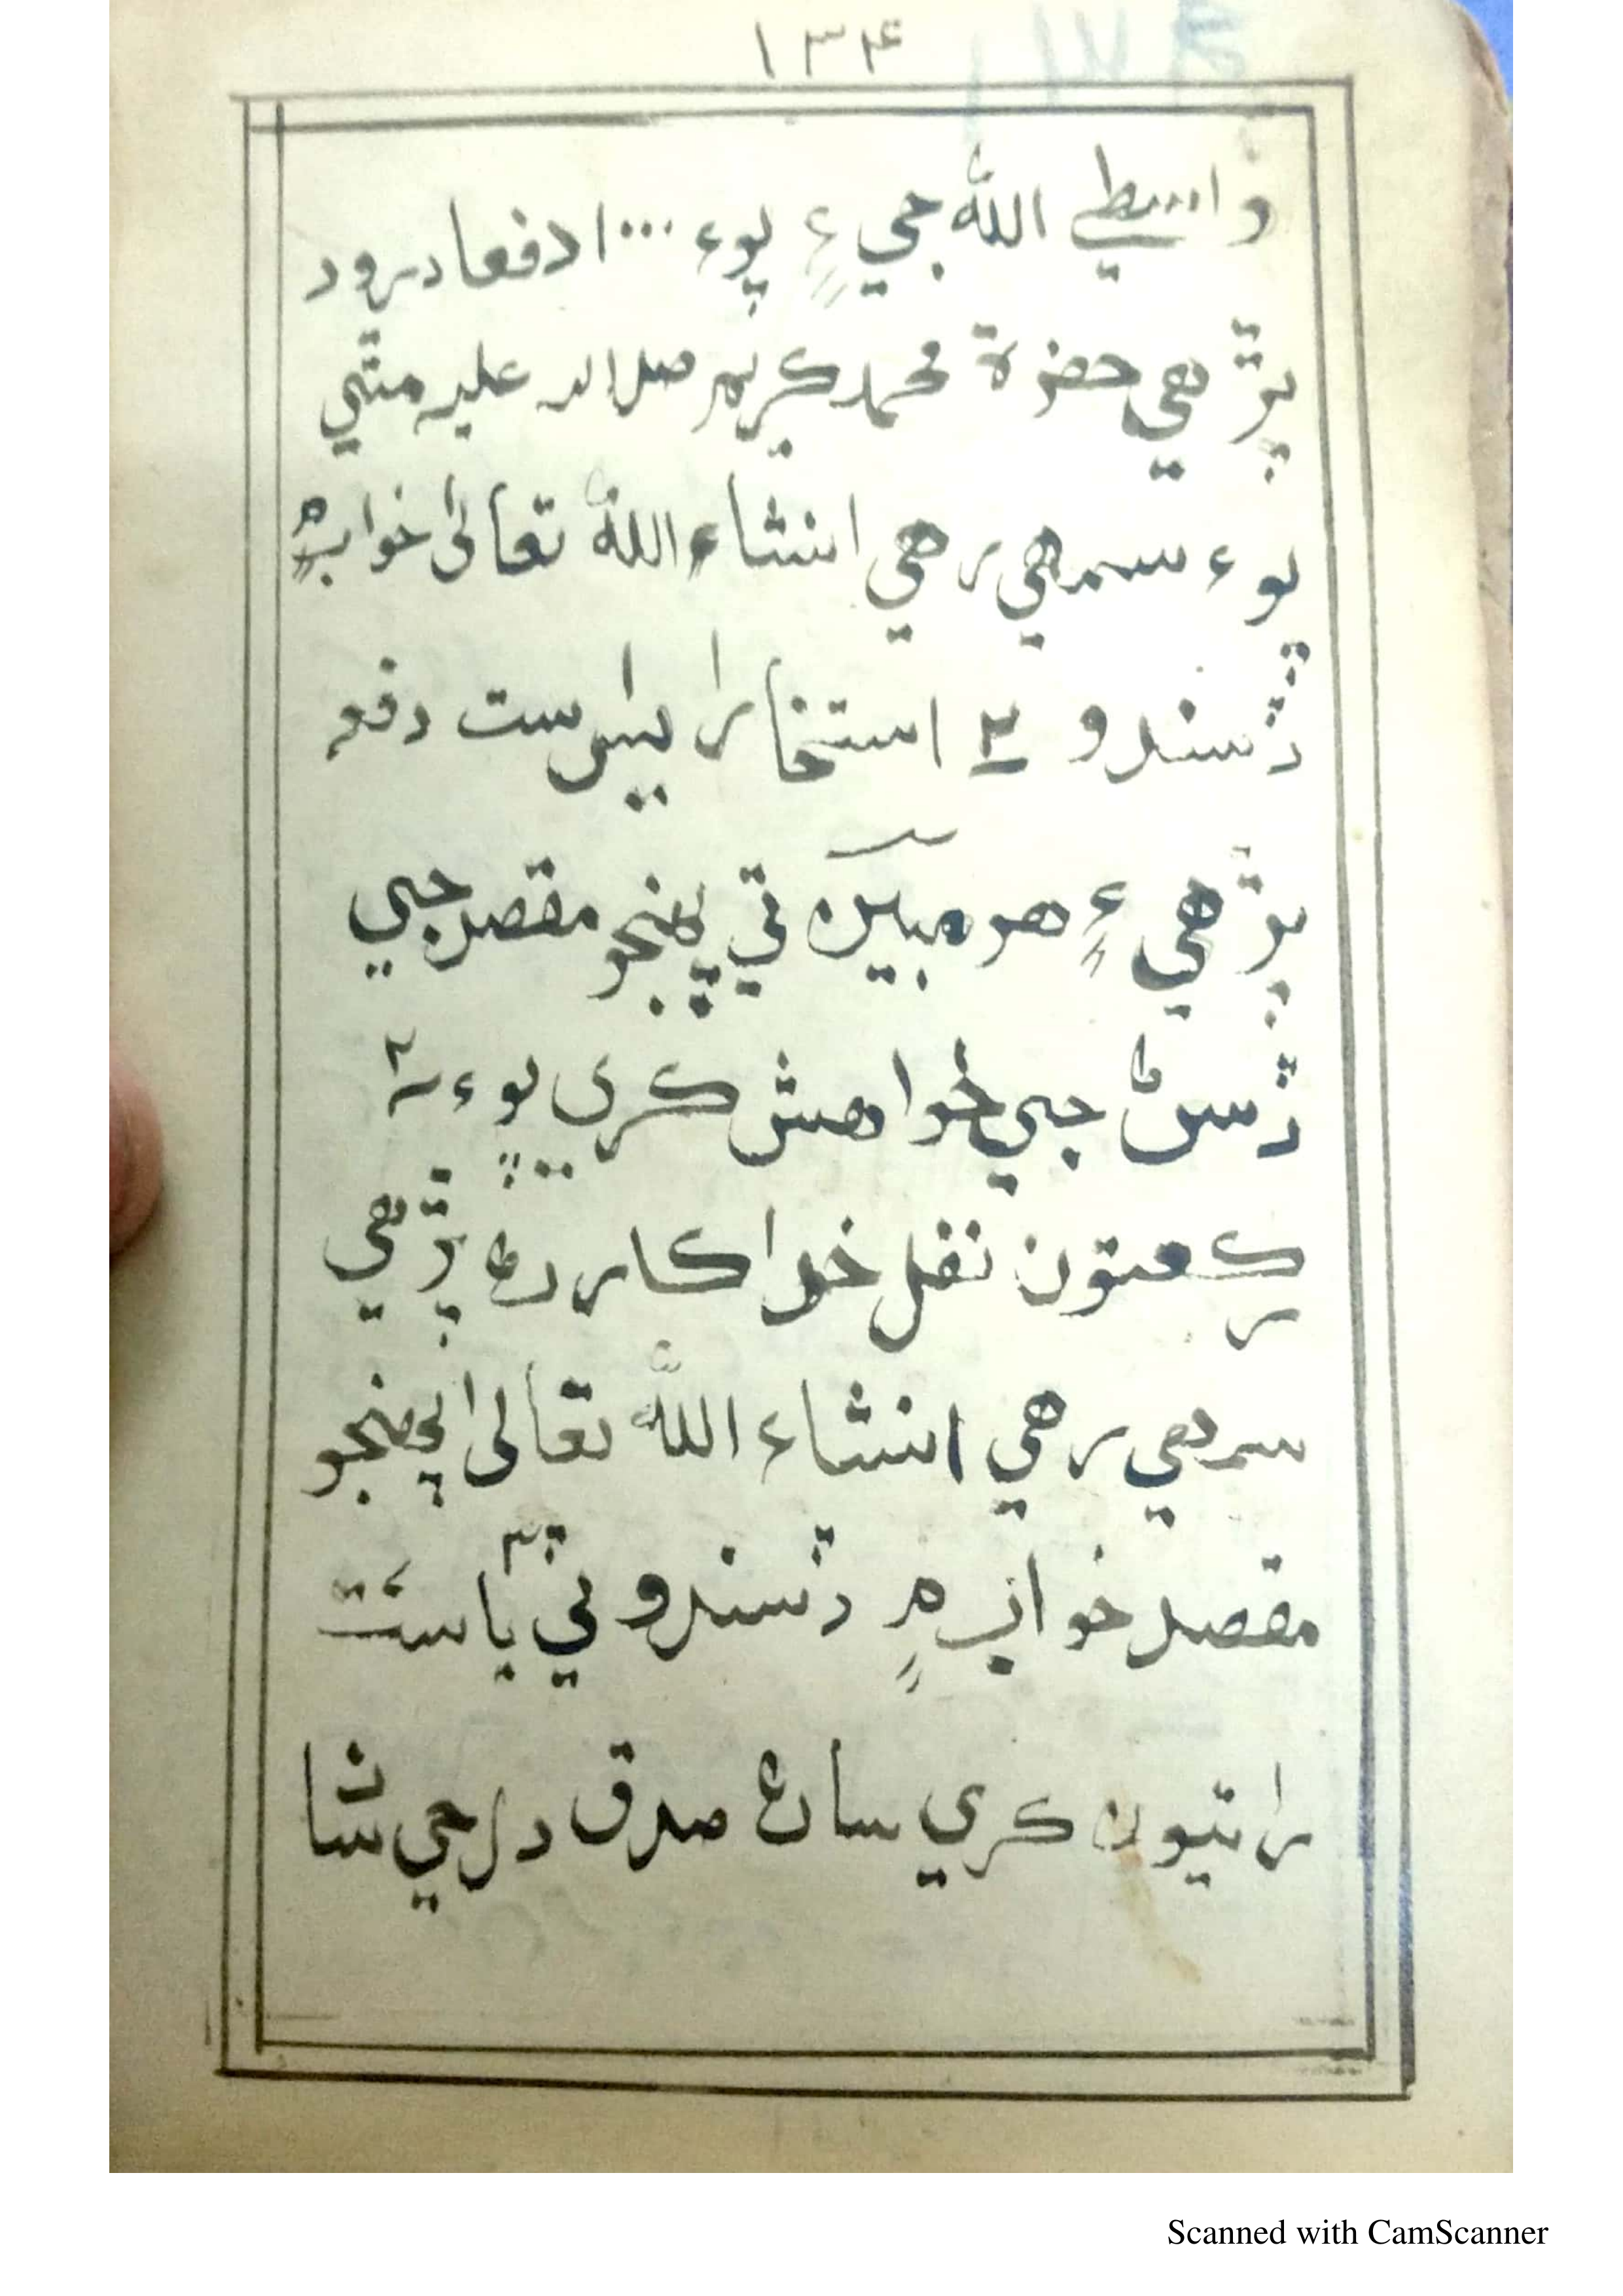 ۱۳۴
واسطي الله جي ۽ پوء ۱۰۰۰ دفعا درود
پڙهي حضرة محمد كريم صلي الله عليه مٿي
پوء سمهي رهي انشاء الله تعالىٰ خواب ۾
ڏسندو ۳ استخارا يٰس ست دفعه
پڙهي ۽ هر مبين تي پهنجو مقصد جي
ڏسڻ جي خواهش كري پوء ۲
ركعتون نفل خدا كارڻ پڙهي
سمهي رهي انشاء الله تعالىٰ پهنجو
مقصد خواب ۾ ڏسندو ٽي يا ست
راتيون كري ساڻ صدق دل جي شان
Scanned with CamScanner